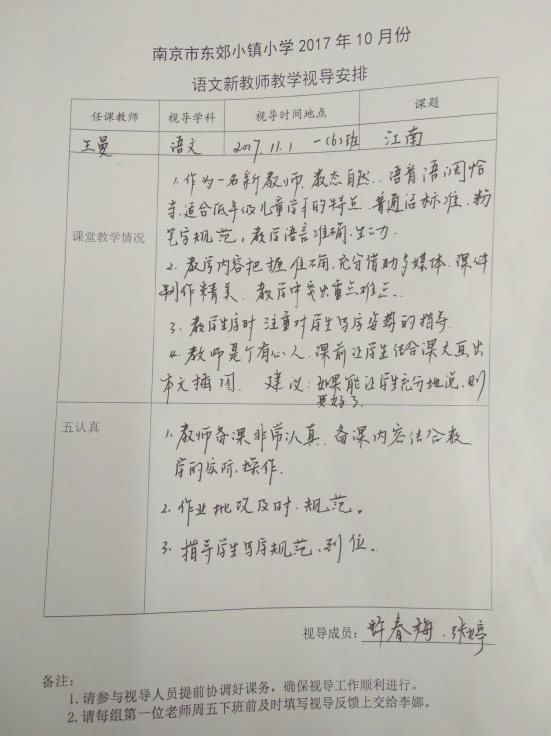 南京市东郊小镇小学 2017 年 10 月份
语文新教师教学视导安排
任课教师 视导学科 视导时间地点 课题
王曼 语文 2017.11.1 一(6)班 江南
课堂教学情况
1.作为一名新教师,教态自然..语音语调恰
当,适合低年级儿童学习的特点.普通话标准.粉
笔字规范,教学语言准确.生动.
2.教学内容把握准确,充分借助多媒体.课件
制作精美.教学中突出重点难点..
3.教学生字时注重对学生写字姿势的指导.
4.教师是个有心人.课前让学生结合课文画出
本文插图. 建议:如果能让学生充分地说,则
更好了.
五认真
1.教师备课非常认真.备课内容结合教
学的实际.操作.
2.作业批改及时.规范。
3.指导学生写字规范.到位.
视导成员:许春梅.张婷
备注:
1.请参与视导人员提前协调好课务,确保视导工作顺利进行。
2.请每组第一位老师周五下班前及时填写视导反馈上交给李娜。